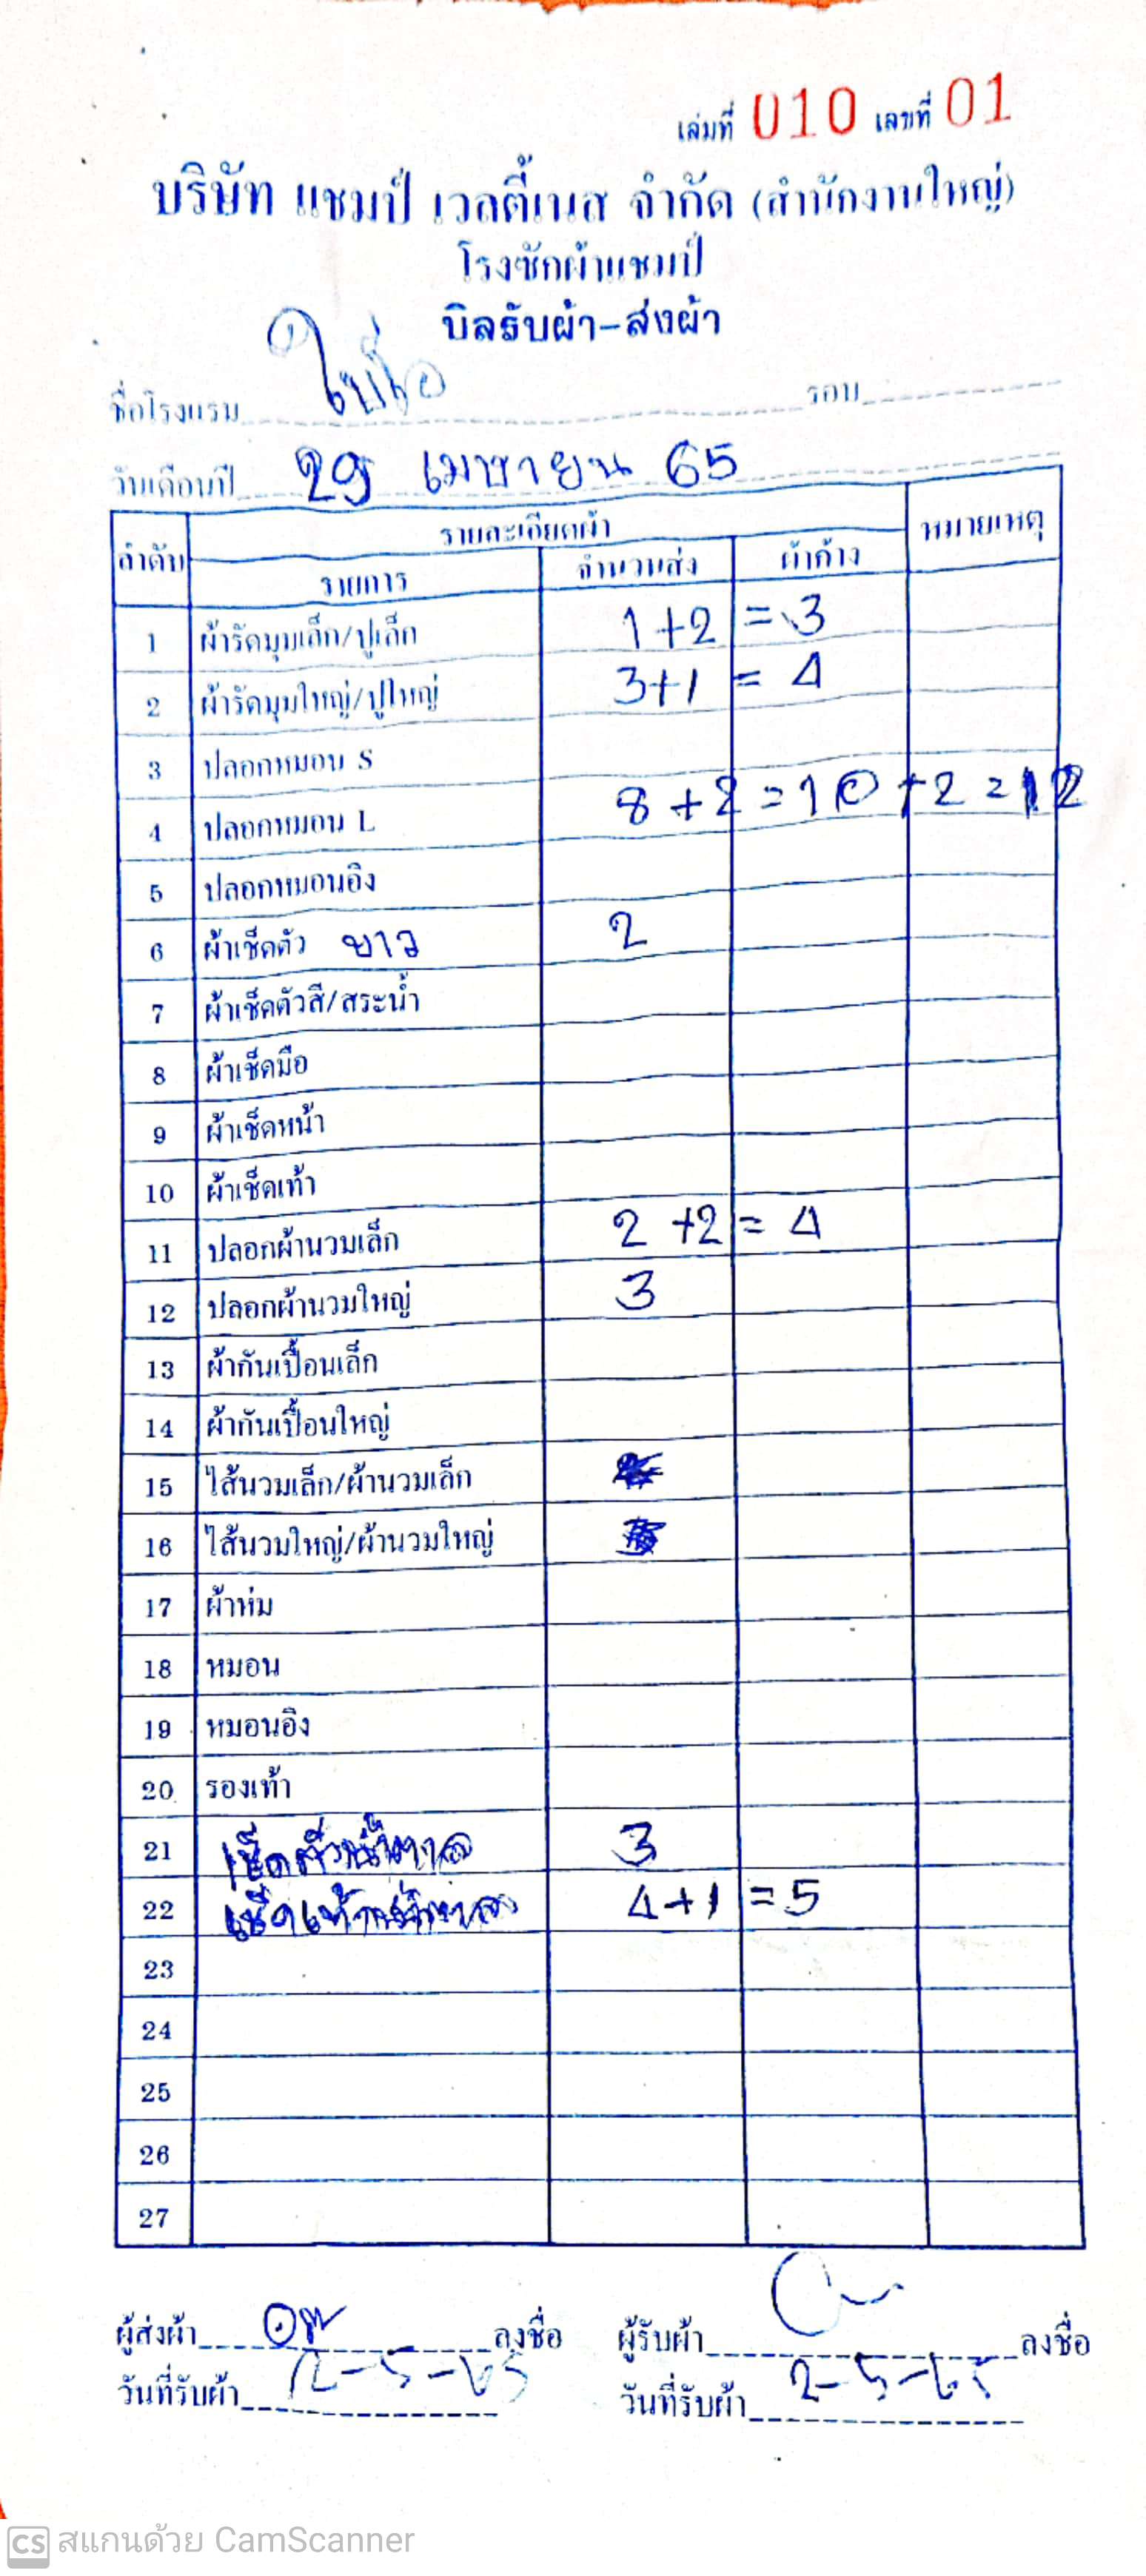 เล่มที่ 010 เลขที่ 01
บริษัท แชมป์ เวลตี้เนส จำกัด (สำนักงานใหญ่)
โรงซักผ้าแชมป์
บิลรับผ้า-ส่งผ้า
ชื่อโรงแรม รอบ
วันเดือนปี 29 เมษายน 65
ลำดับ รายละเอียดผ้า หมายเหตุ
รายการ จำนวนส่ง ผ้าค้าง
1 ผ้ารัดมุมเล็ก/ปูเล็ก 1+2 = 3
2 ผ้ารัดมุมใหญ่/ปูใหญ่ 3+1 = 4
3 ปลอกหมอน S
4 ปลอกหมอน L 8+2=10+2=12
5 ปลอกหมอนอิง
6 ผ้าเช็ดตัว ขาว 2
7 ผ้าเช็ดตัวสี/สระน้ำ
8 ผ้าเช็ดมือ
9 ผ้าเช็ดหน้า
10 ผ้าเช็ดเท้า
11 ปลอกผ้านวมเล็ก 2+2 = 4
12 ปลอกผ้านวมใหญ่ 3
13 ผ้ากันเปื้อนเล็ก
14 ผ้ากันเปื้อนใหญ่
15 ไส้นวมเล็ก/ผ้านวมเล็ก
16 ไส้นวมใหญ่/ผ้านวมใหญ่
17 ผ้าห่ม
18 หมอน
19 หมอนอิง
20 รองเท้า
21 เช็ดตัวน้ำตาล 3
22 เช็ดเท้าน้ำตาล 4+1 = 5
23
24
25
26
27
ผู้ส่งผ้า ลงชื่อ ผู้รับผ้า ลงชื่อ
วันที่รับผ้า 2-5-65 วันที่รับผ้า 2-5-65
CS สแกนด้วย CamScanner